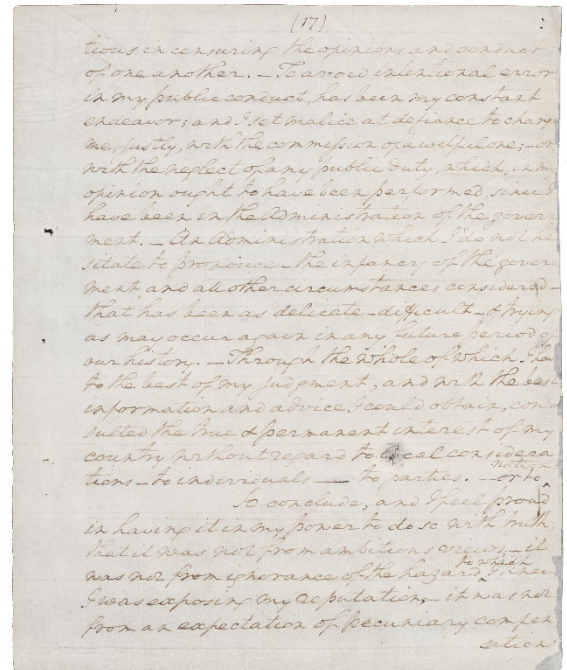 (17)
tious in censuring the opinions and conduct
of one another. — To avoid intentional error
in my public conduct, has been my constant
endeavor; and I set malice at defiance to charge
me, justly, with the commission of a wilful one; — or
with the neglect of any public duty, which, in my
opinion ought to have been performed, since I
have been in the Administration of the govern
ment. — An Administration which I do not he
sitate to pronounce — the infancy of the govern
ment, and all other circumstances considered —
that has been as delicate — difficult — & trying
as may occur again in any future period of
our history. — Through the whole of which I have
to the best of my judgment, and with the best
information and advice I could obtain, con
sulted the true & permanent interest of my
country without regard to local considera
tions — to individuals — to parties. — or to
nations
To conclude, and I feel proud
in having it in my power to do so with truth,
that it was not from ambitious views, — it
was not from ignorance of the hazard to which I knew
I was exposing my reputation, — it was not
from an expectation of pecuniary compen
sation